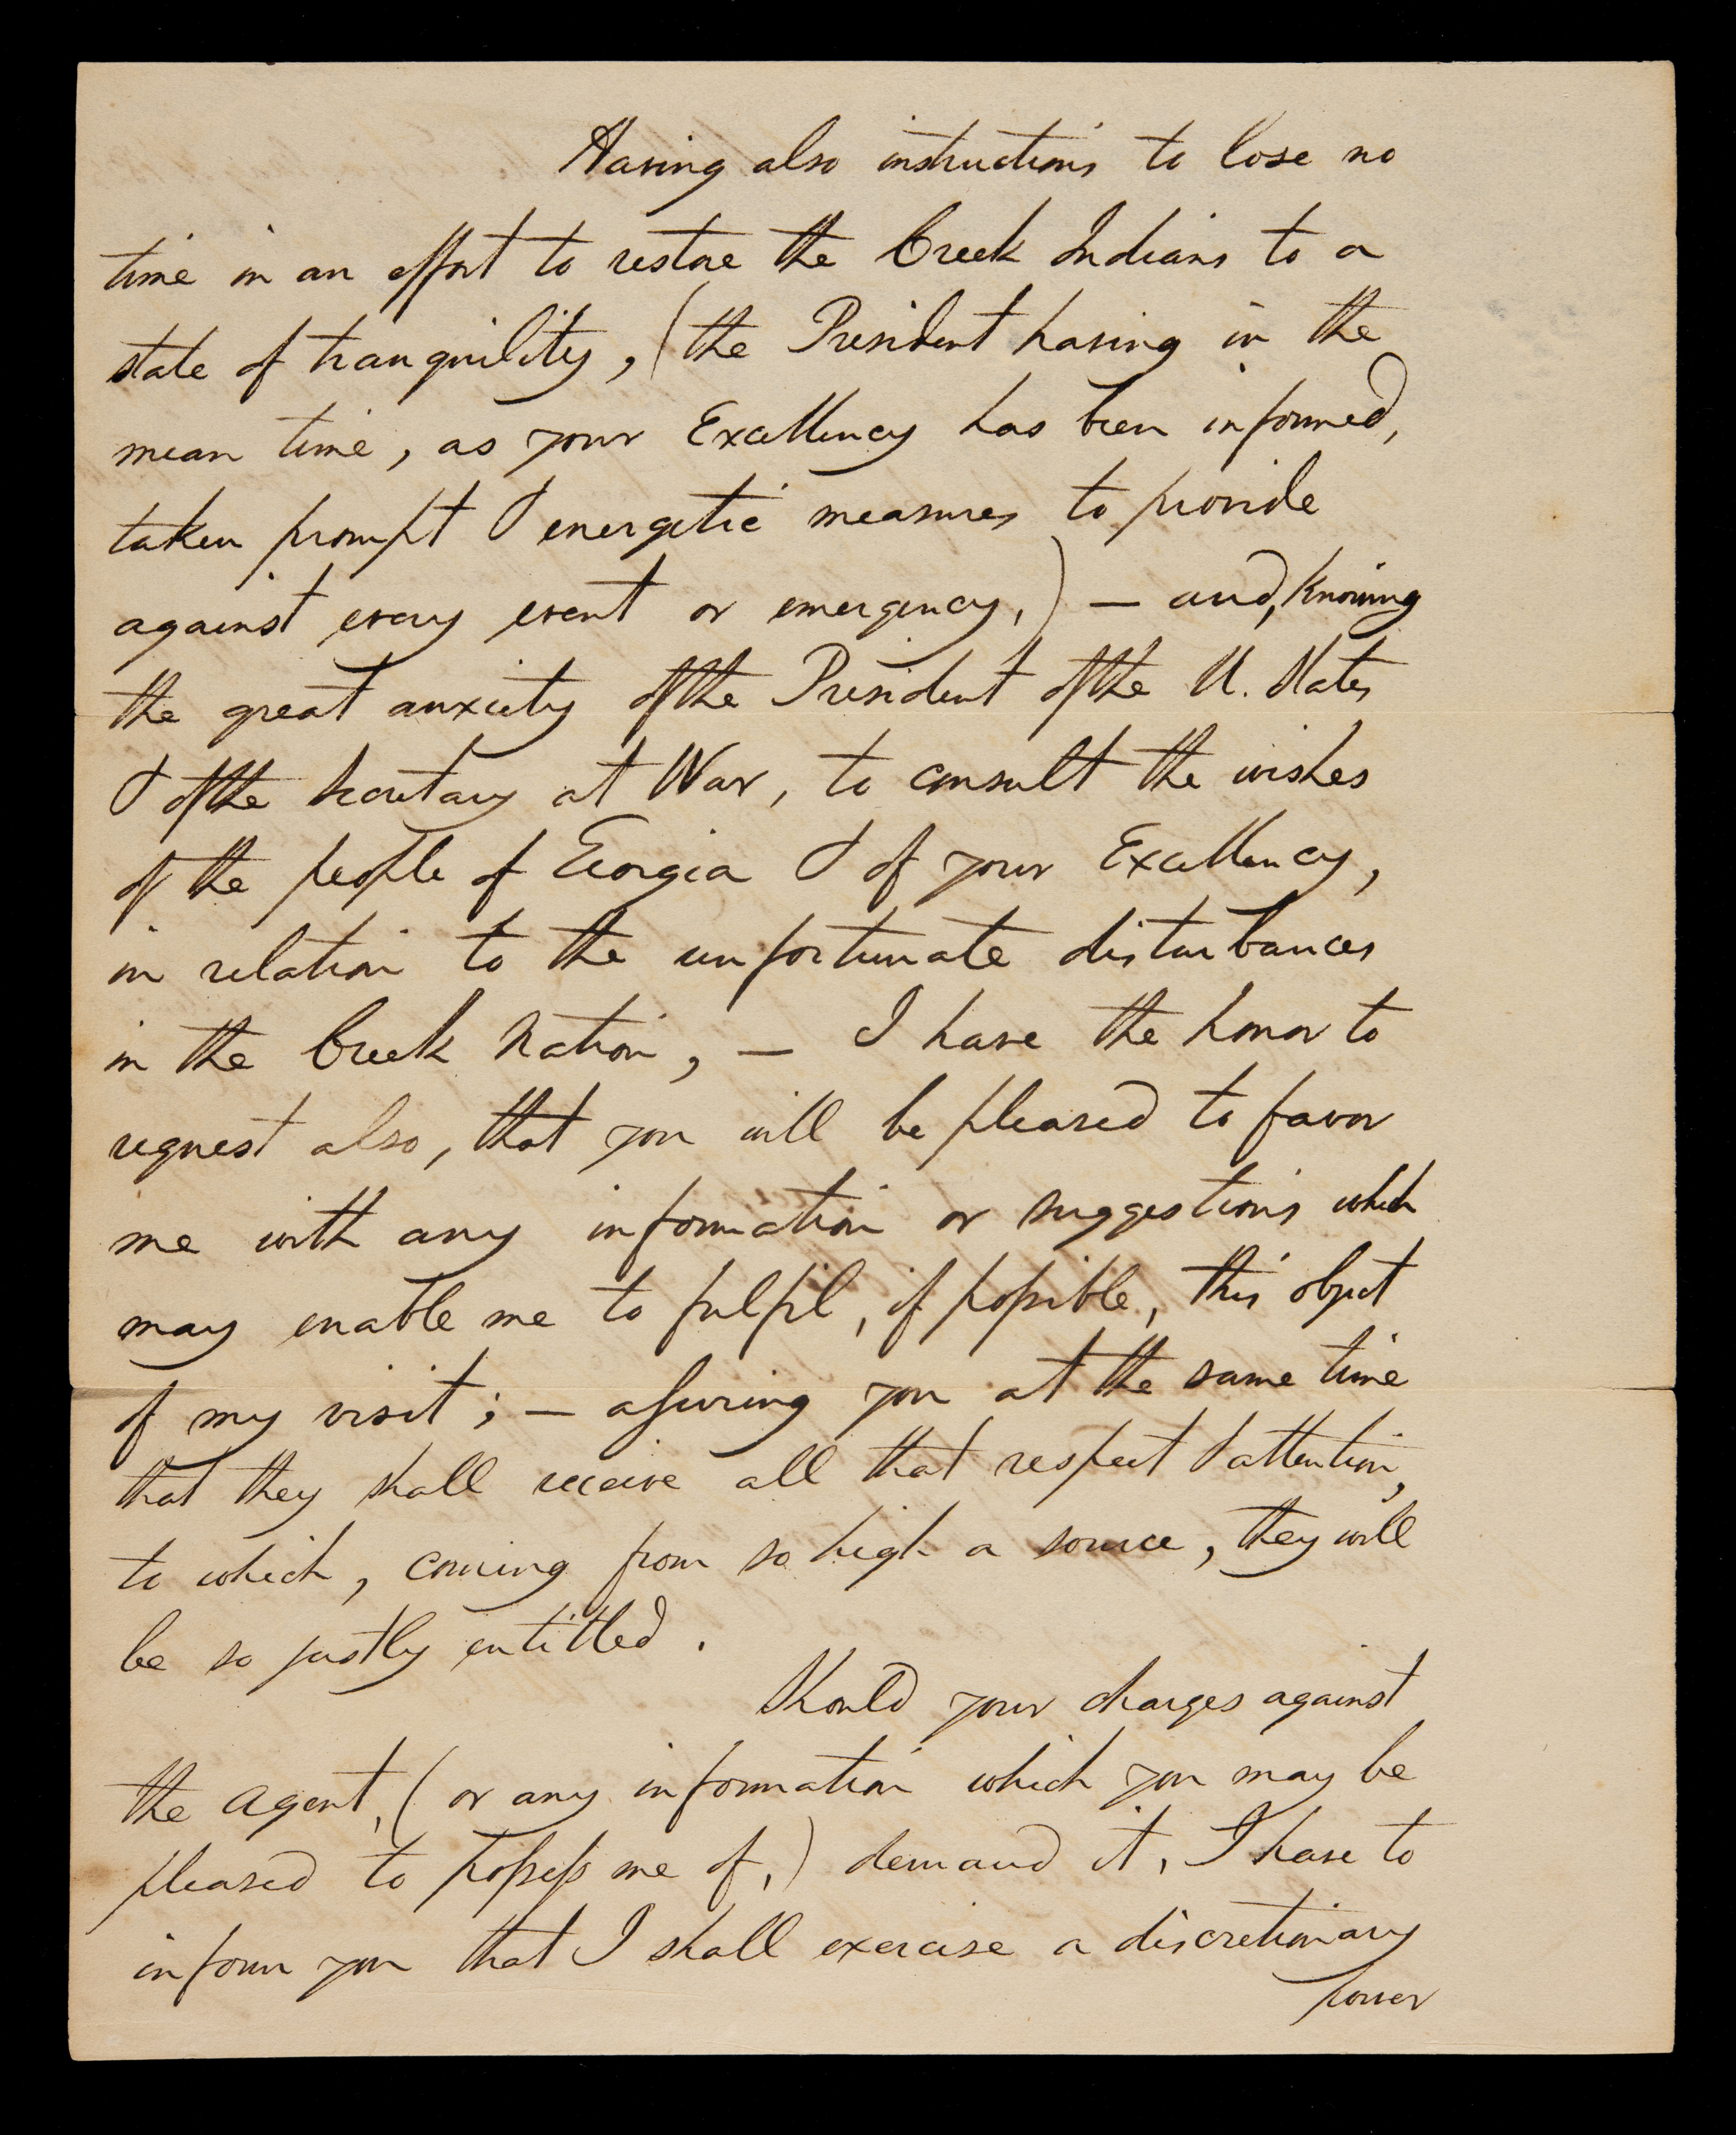 Having also instructions to lose no
time in an effort to restore the Creek Indians to a
state of tranquility, (the President having in the
mean time, as your Excellency has been informed,
taken prompt & energetic measures to provide
against every event or emergency,) — and, knowing
the great anxiety of the President of the U. States
& of the Secretary at War, to consult the wishes
of the people of Georgia & of your Excellency,
in relation to the unfortunate disturbances
in the Creek Nation, — I have the honor to
request also, that you will be pleased to favor
me with any information or suggestions which
may enable me to fulfil, if possible, this object
of my visit; — assuring you at the same time
that they shall receive all that respect & attention,
to which, coming from so high a source, they will
be so justly entitled.
Should your charges against
the agent, (or any information which you may be
pleased to possess me of,) demand it, I have to
inform you that I shall exercise a discretionary
power